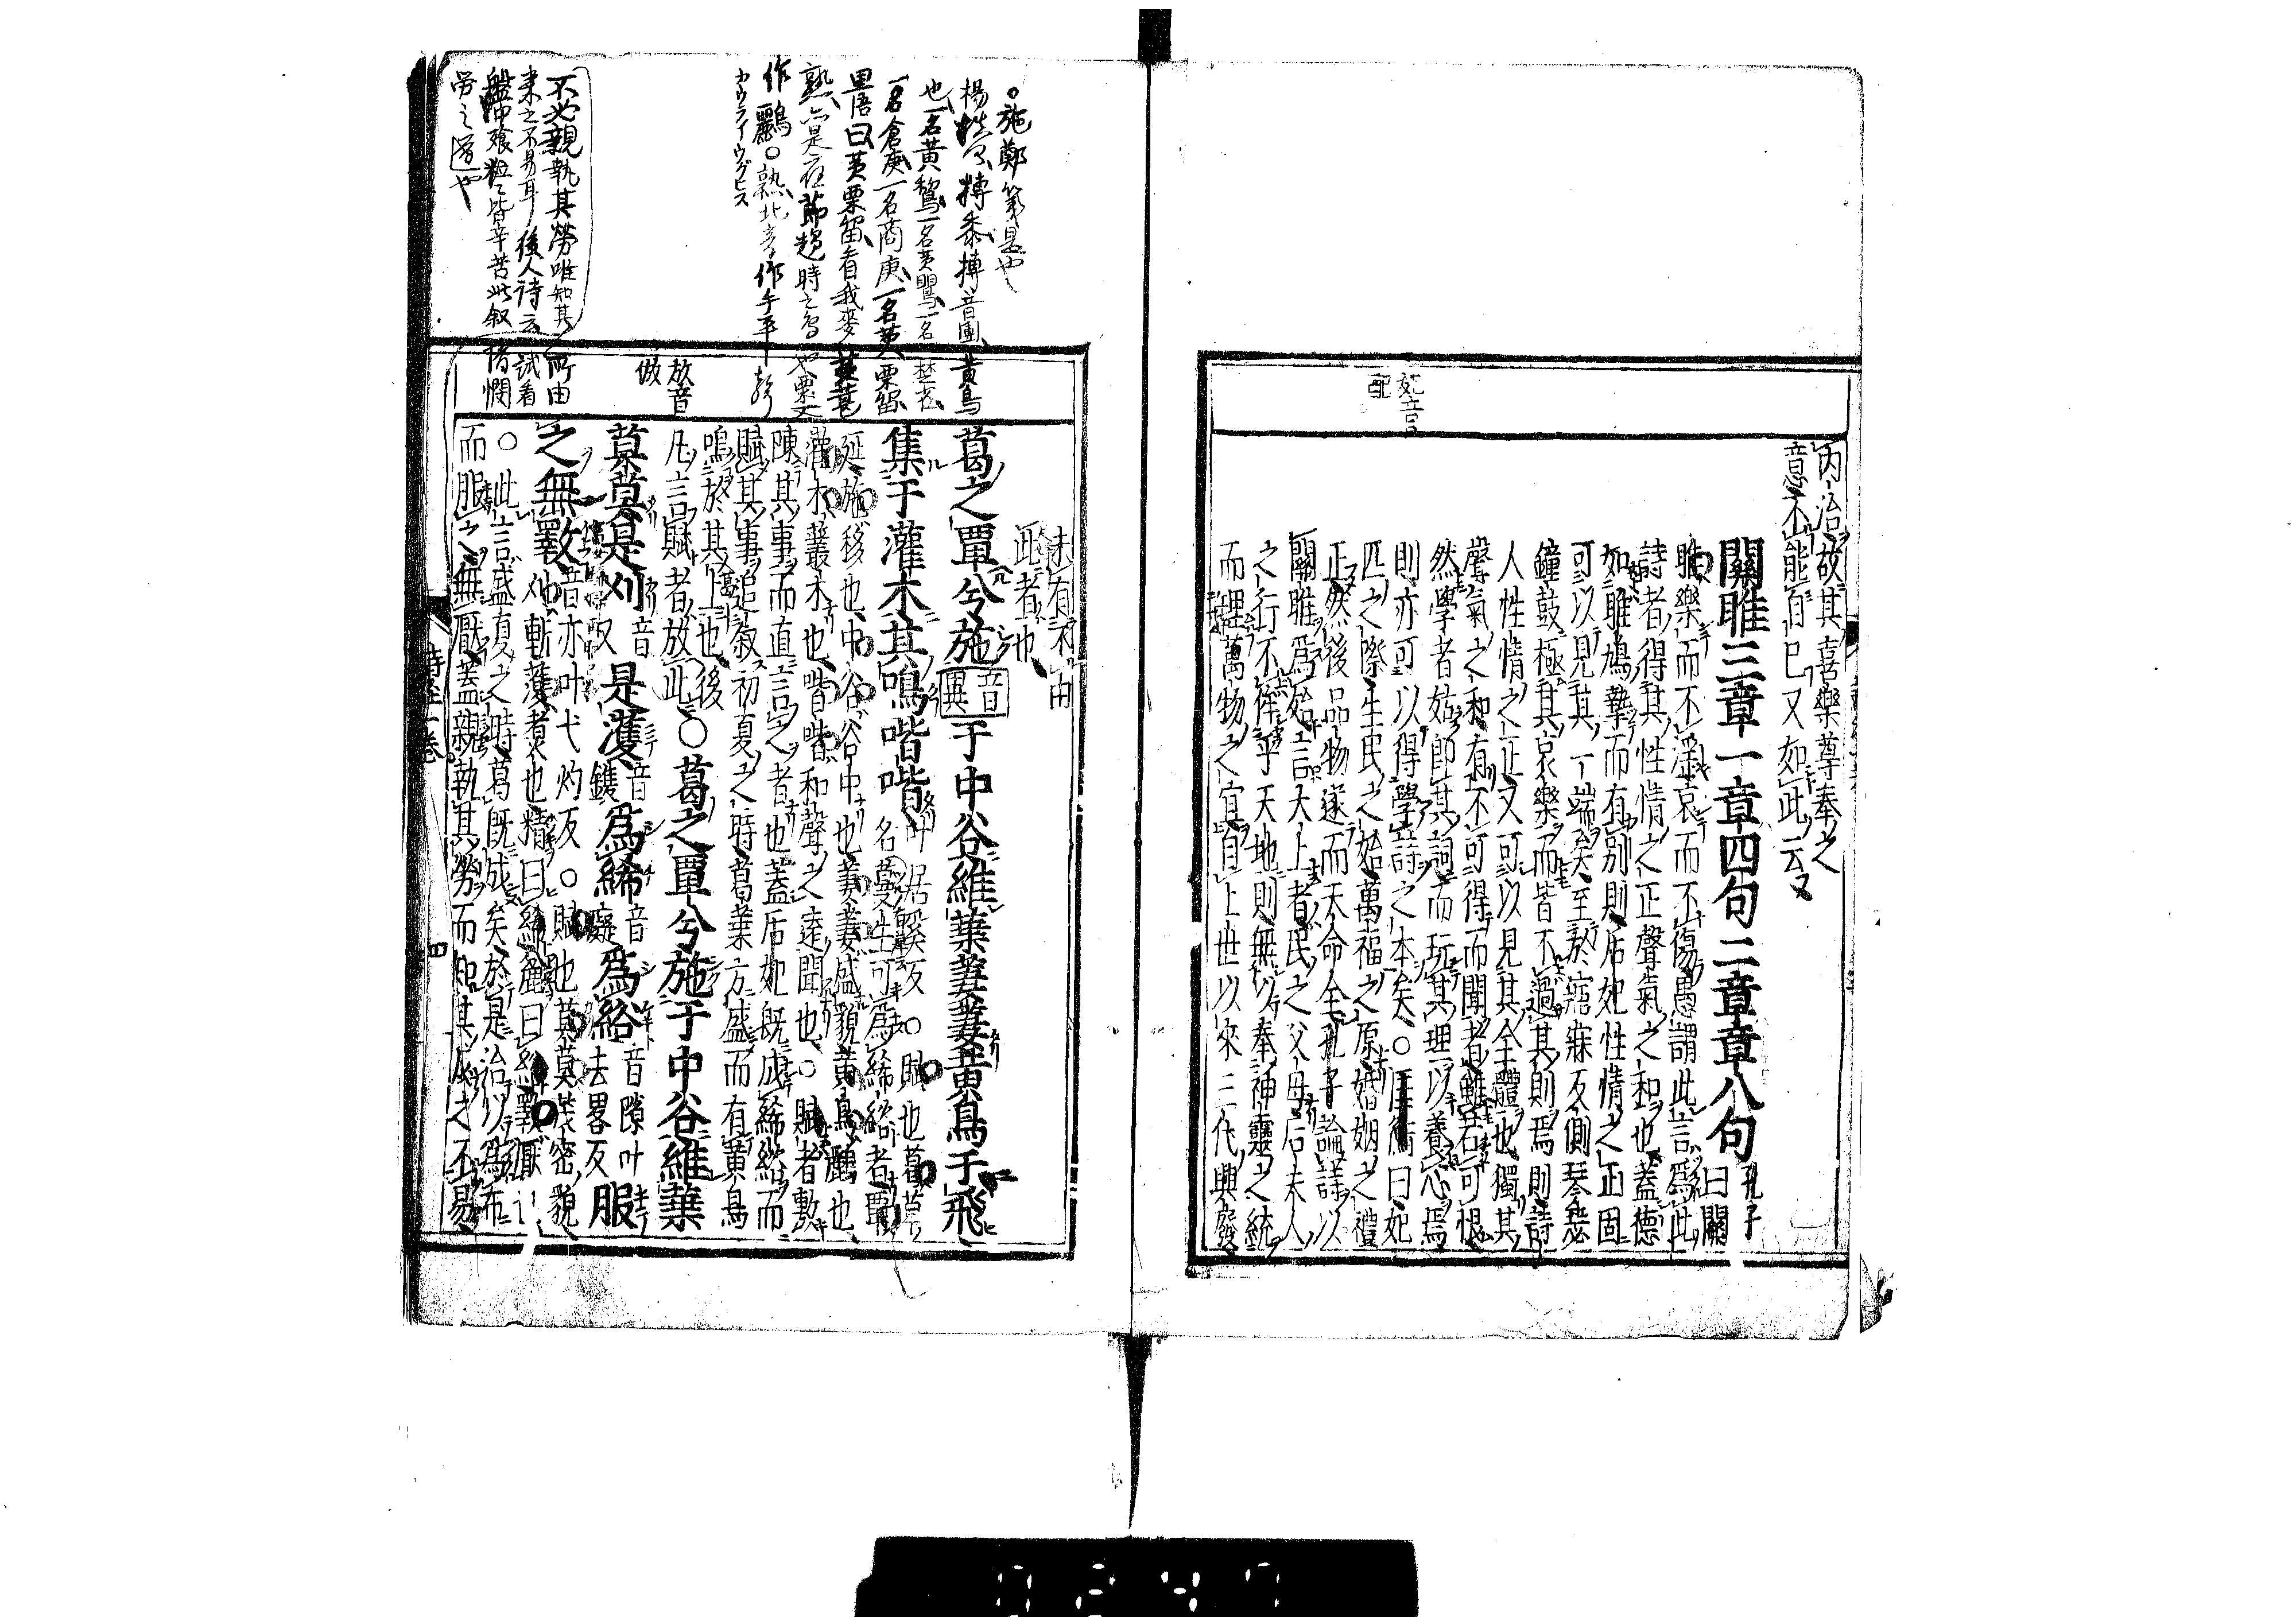 内治故其喜樂尊奉之
意不能自已又如此云
關雎三章一章四句二章章八句
孔子
曰關
雎樂而不淫哀而不傷愚謂此言爲此
詩者得其性情之正聲氣之和也蓋德
如雎鳩摯而有別則后妃性情之正固
可以見其一端矣至於寤寐反側琴瑟
鐘鼓極其哀樂而皆不過其則焉則詩
人性情之正又可以見其全體也獨其
聲氣之和有不可得而聞者雖若可恨
然學者姑即其詞而玩其理以養心焉
則亦可以得學詩之本矣○匡衡曰妃
匹之際生民之始萬福之原婚姻之禮
正然後品物遂而天命全孔子論詩以
關雎爲始言大上者民之父母后夫人
之行不侔乎天地則無以奉神靈之統
而理萬物之宜自上世以來三代興廢
妃音
配
未有不由
此者也
葛之覃兮施音異于中谷維葉萋萋黃鳥于飛
集于灌木其鳴喈喈叶居奚反○賦也葛草
名蔓生可爲絺綌者覃
延施移也中谷谷中也萋萋盛貌黃鳥鸝也
灌木叢木也喈喈和聲之遠聞也○賦者敷
陳其事而直言之者也蓋后妃既成絺綌而
賦其事追叙初夏之時葛葉方盛而有黃鳥
鳴於其上也後
凡言賦者放此○葛之覃兮施于中谷維葉
莫莫是刈音乂是濩音鑊爲絺音癡爲綌音隙叶去畧反服
之無斁音亦叶弋灼反○賦也莫莫茂密貌
刈斬濩煮也精曰絺麤曰綌斁厭也
○此言盛夏之時葛既成矣於是治以爲布
而服之無厭蓋親執其勞而知其成之不易
放音
倣
○施鄭箋是也
黃鳥
也一名黃鸝一名黃鸎一名
一名倉庚一名商庚一名黃栗留
里語曰黃栗留看我麥黃葚
熟亦是應節趨時之鳥也
作鸝○
カウライウグヒス
不必親執其勞唯知其所由
來之不易耳後人詩云試看
盤中飧粒〻皆辛苦此叙
詩經一卷
四